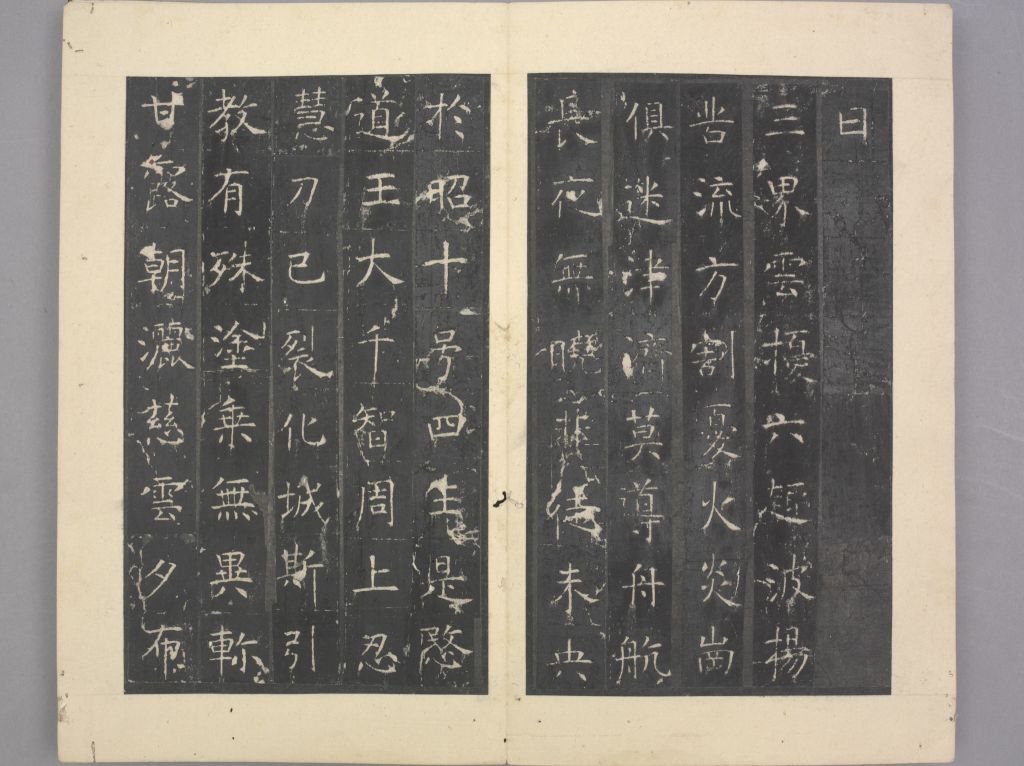 曰
三界雲擾六趣波揚
苦流方割憂火炎崗
俱迷津濟莫尊舟航
長夜無曉未央
於昭十号四生是愍
道王大千智周上忍
慧刀已裂化城斯引
教有殊塗乘無異軫
甘露朝灑慈雲夕布